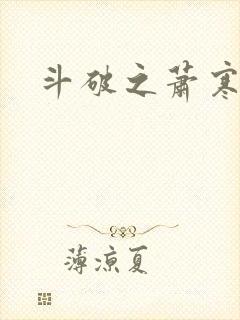 斗破之萧寒
薄凉夏